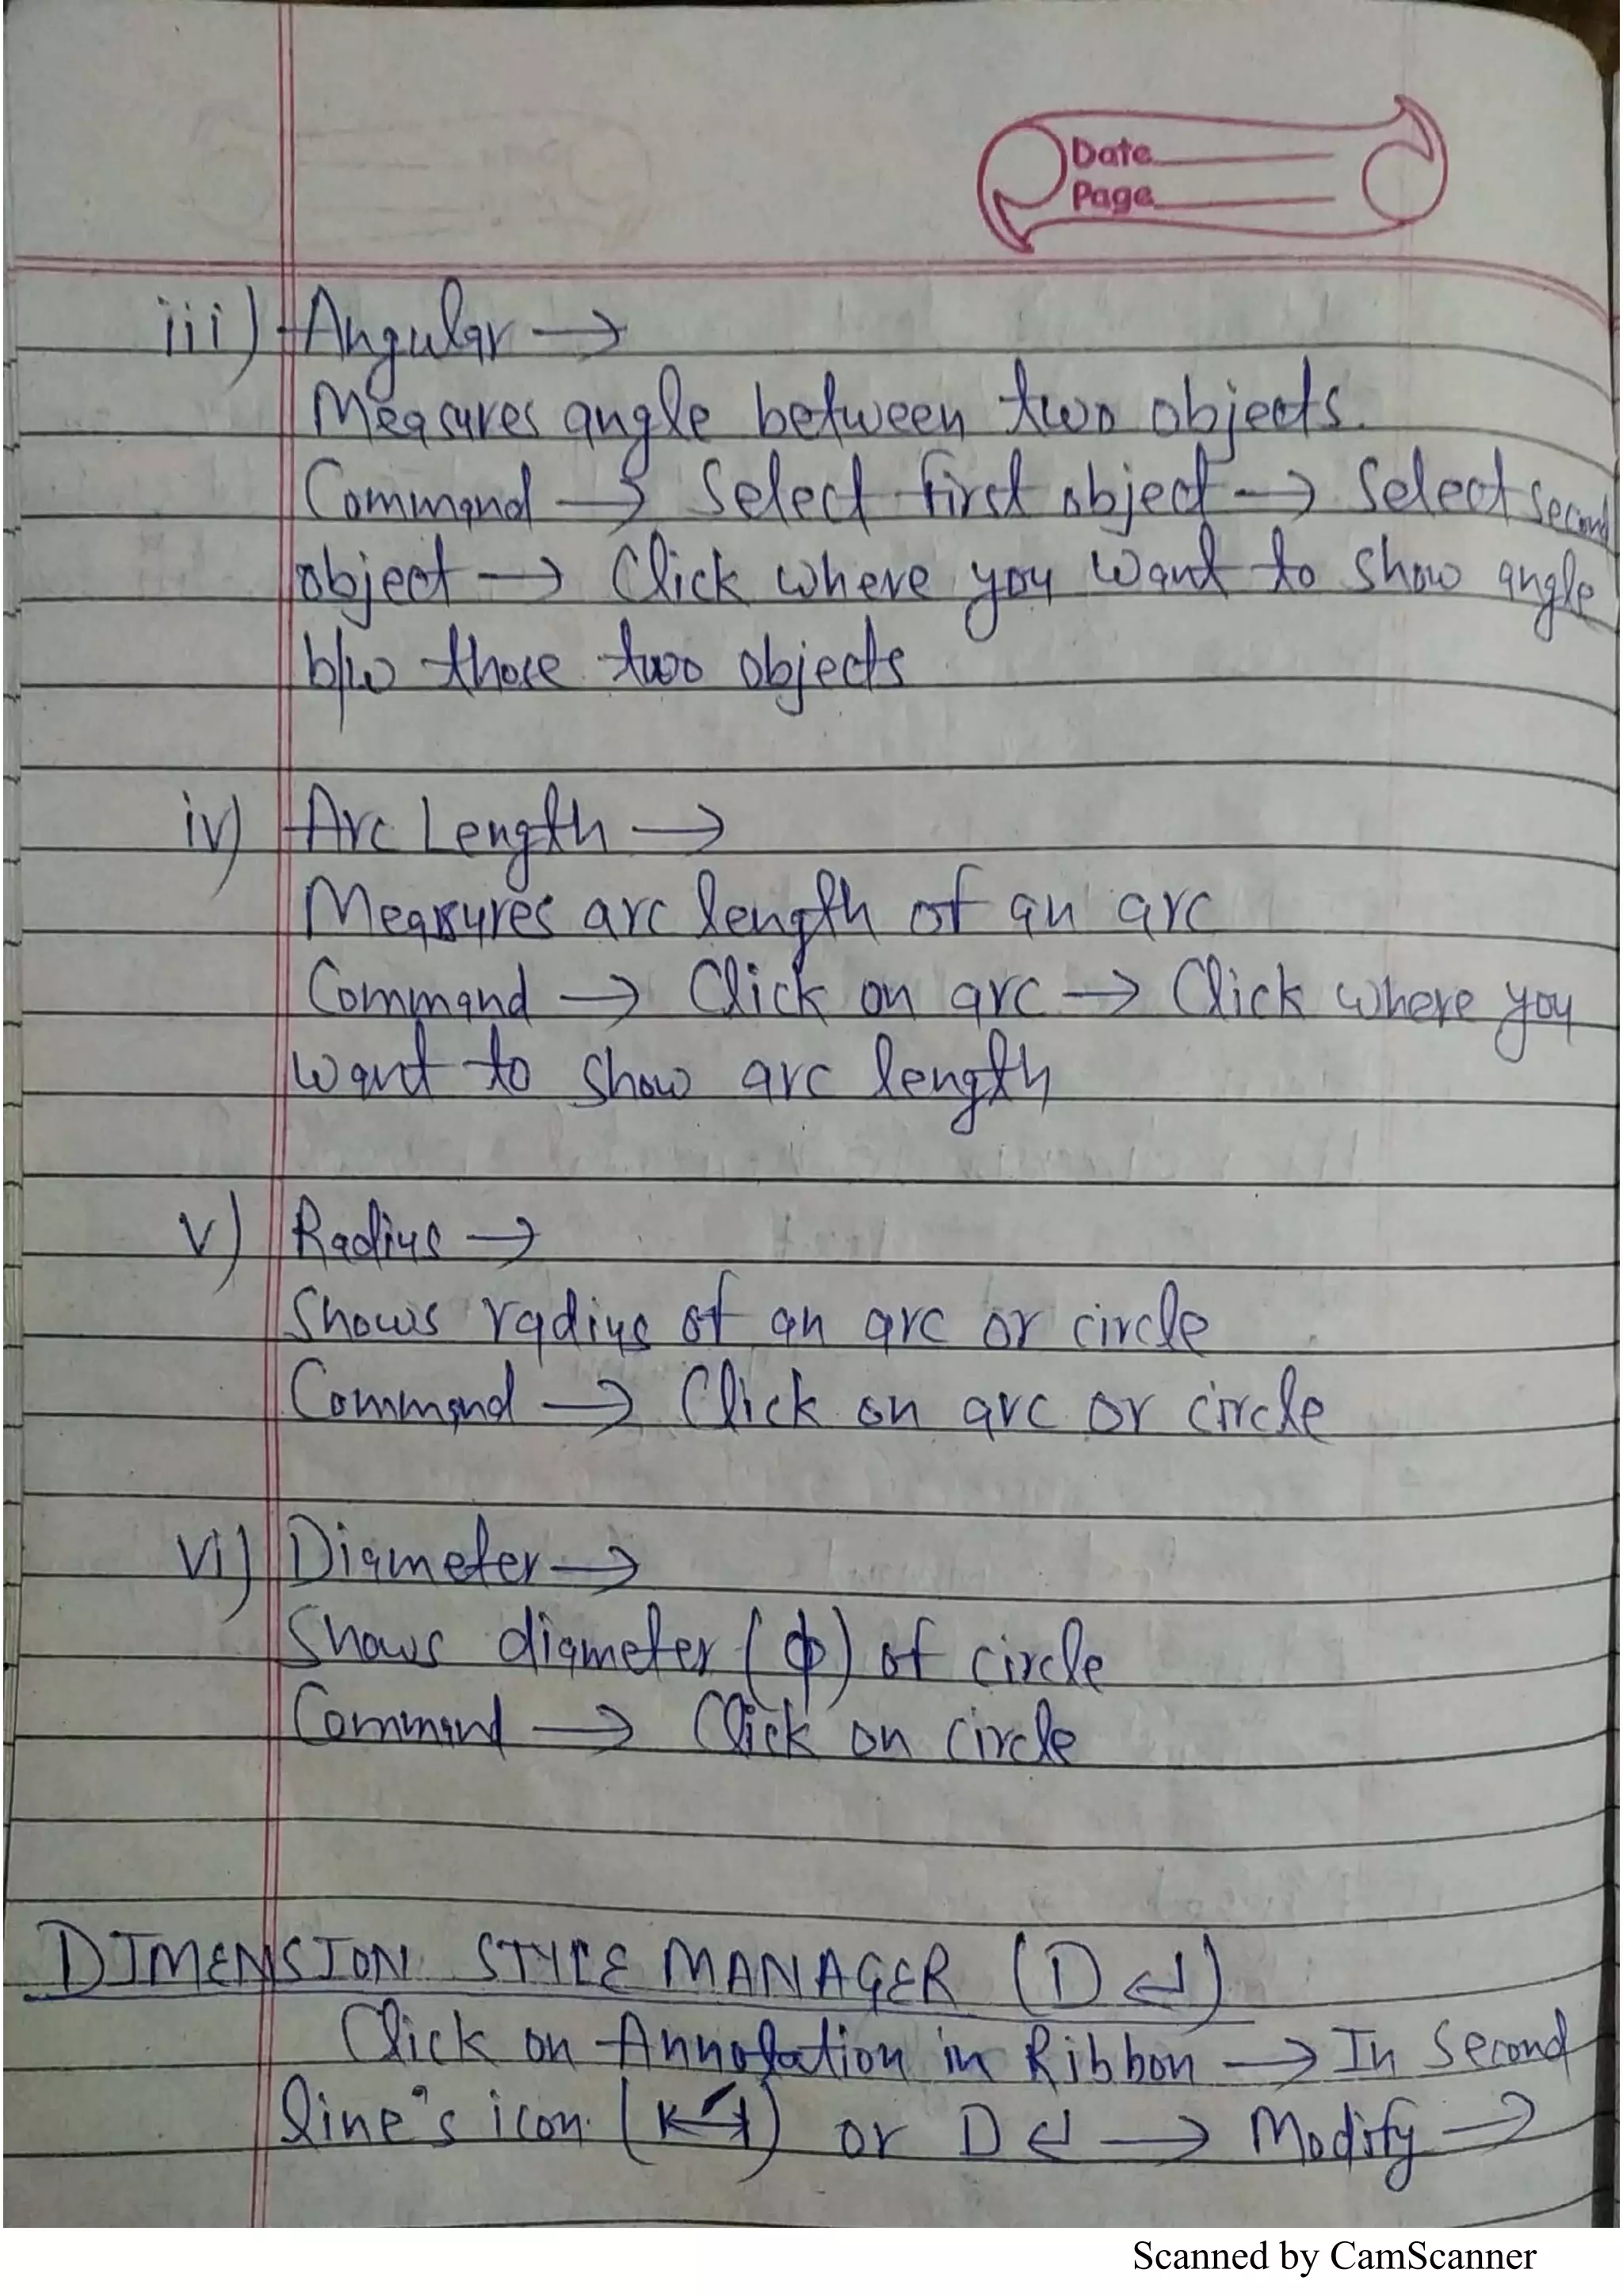 Date
Page
iii) Angular →
Measures angle between two objects.
Command → Select first object → Select second
object → Click where you want to show angle
b/w those two objects
iv) Arc Length →
Measures arc length of an arc
Command → Click on arc → Click where you
want to show arc length
v) Radius →
Shows radius of an arc or circle
Command → Click on arc or circle
vi) Diameter →
Shows diameter (ϕ) of circle
Command → Click on circle
DIMENSION STYLE MANAGER (D ↵)
Click on Annotation in Ribbon → In Second
line's icon ( ) or D ↵ → Modify →
Scanned by CamScanner